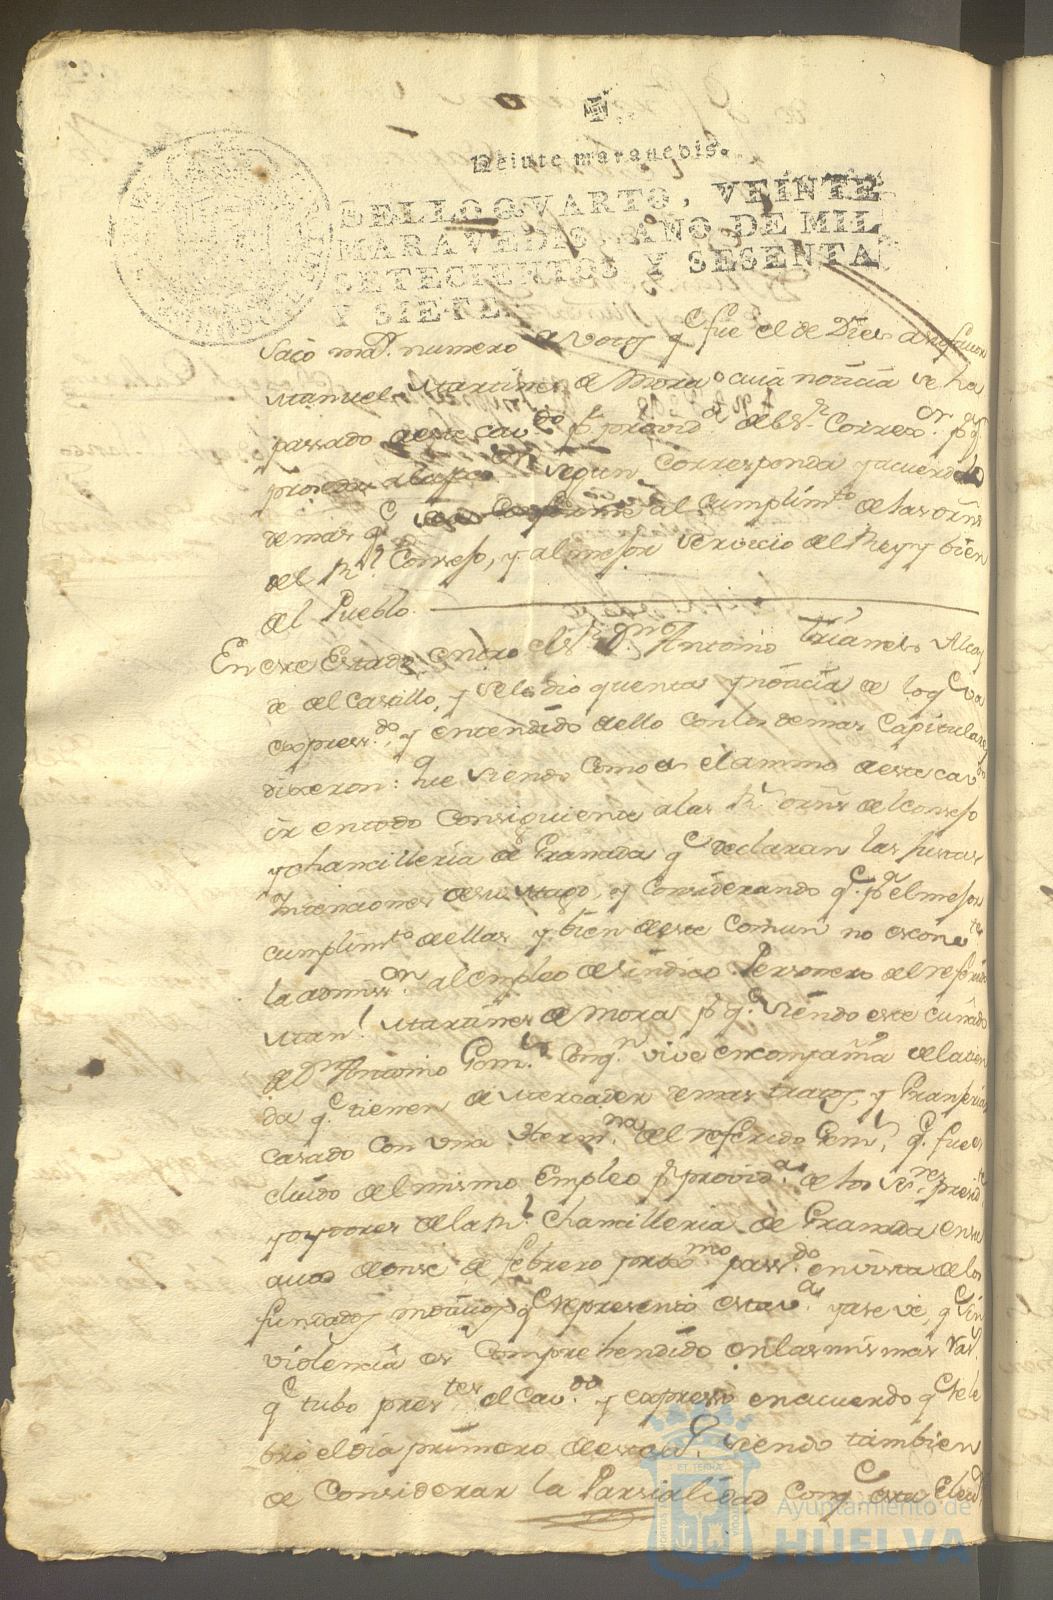 Veinte maravedis.
SELLO QVARTO, VEINTE
MARAVEDIS, AÑO DE MIL
SETECIENTOS Y SESENTA
Y SIETE.
Sacò maor. numero de votos qe fue el de Dies a su favor
Manuel Martines de Mora cuia noticia se ha
passado a este Cavdo pr provida. del Sr. Corregor. pa. qe
proceda a la posson segun corresponda y acuerde lo
demas qe sea conforme al cumplimto de las ornẽs
del Rl. Consejo, y al mejor servicio del Rey y bien
del Pueblo.
En este Estado entro el Sr. Dn. Antonio Trianes Alcay
de del Castillo, y se le dio quenta y noticia de lo qe va
expresdo, y entendido dello con los demas Capitulares
dixeron: Que siendo como es el animo de este cavdo
ir en todo consiguiente a las Rs ornẽs del Consejo
y chancilleria de Granada qe declaran las justas
Intenciones de su Magd, y considerando qe. pa. el mejor
cumplimto dellas y bien deste comun no es conete
la admison al empleo de sindico Personero del referido
Manl Martines de Mora pr qe. siendo este cuñado
de Dn Antonio Goms. con qn vive en compañia de la tien
da qe. tienen de Mercader demas tratos, y Granjerias
casado con una Hermna. del referido Goms, qe. fue ex
cluido del mismo Empleo pr provida. de los Sres. preside
y oydores de la Rl. Chancilleria de Granada en su
auto de onse de febrero proximo passdo. en vista de los
fundados motivos qe represento esta va. y a se ve, qe sin
violencia es comprehendido en las mismas
qe tubo prestes el Cavdo. y expresso en acuerdo qe cele
brò el dia primero de este, siendo tambien
de considerar la Parsialidad con qe esta
Ayuntamiento de
HUELVA